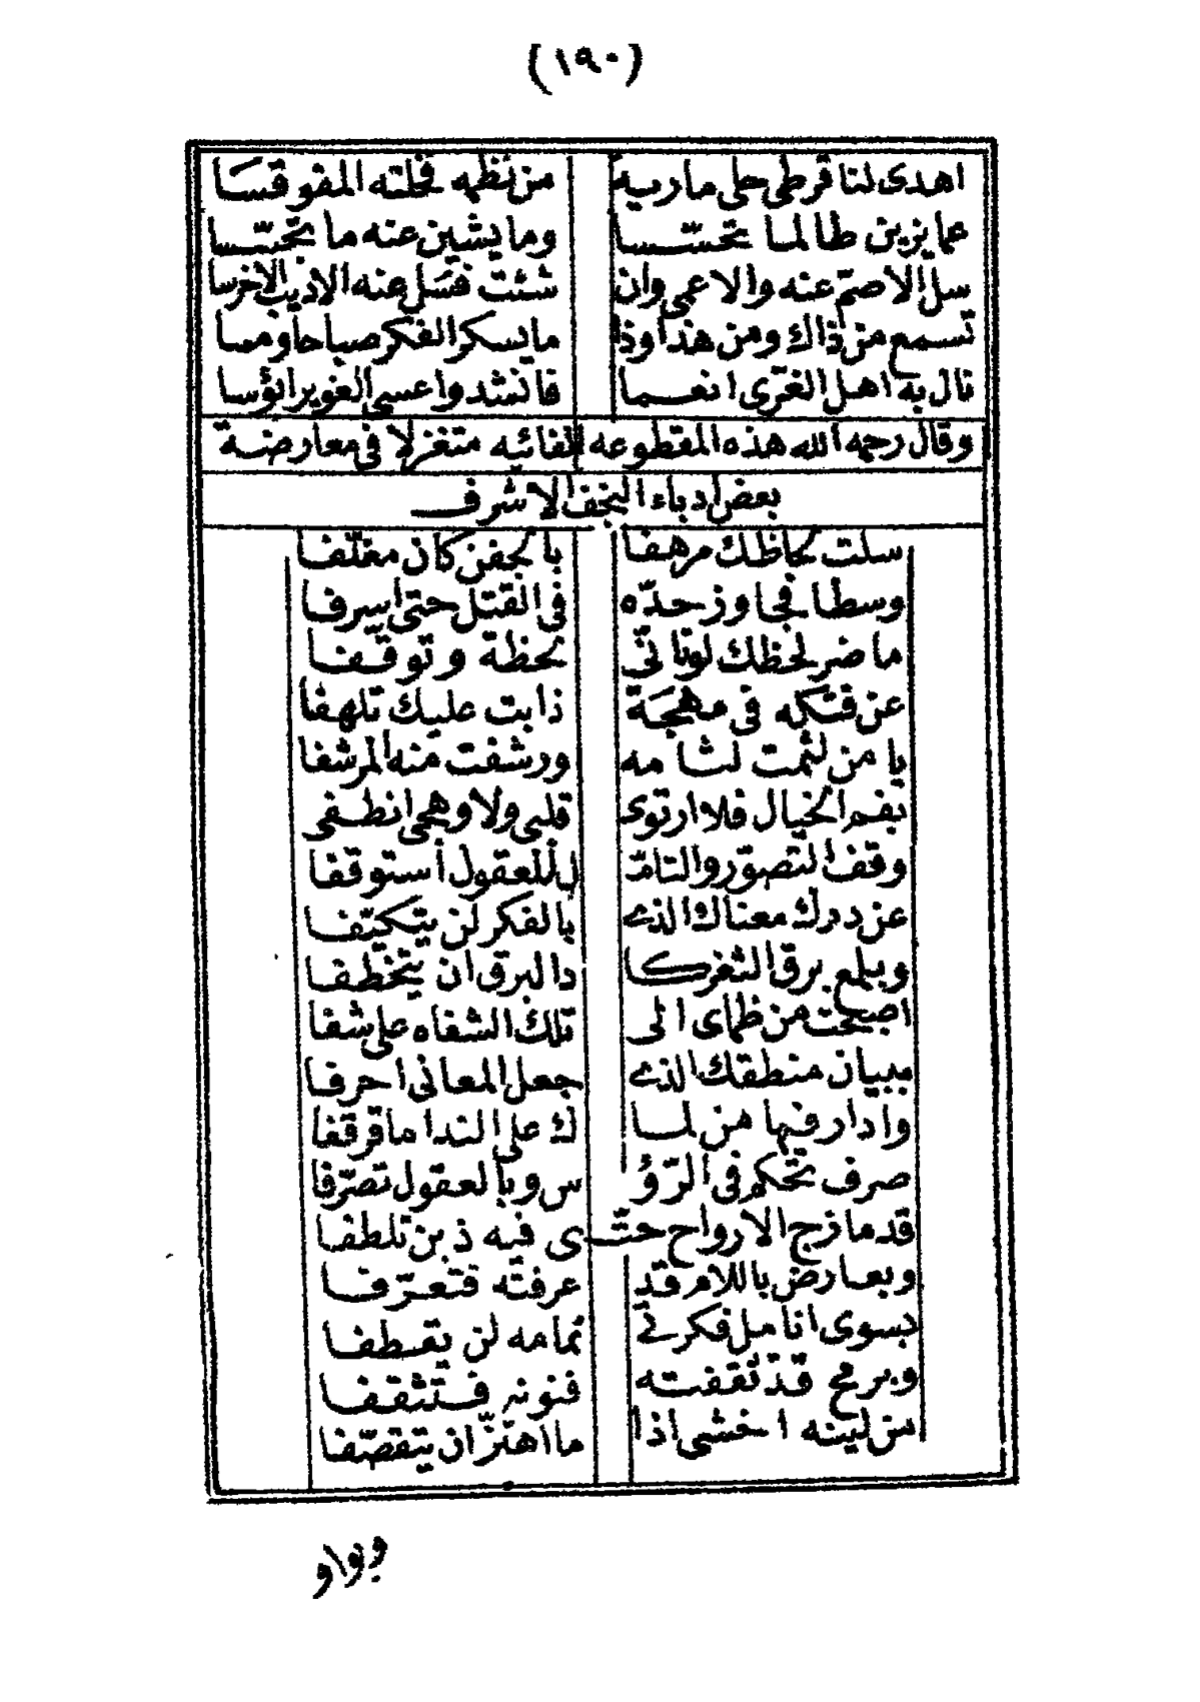 (١٩٠)
اهدى لنا قرطى حلى ماريه من نظمه فخلته المقوقسا
عما يزين طالما تحسّسا وما يشين عنه ما تجسّسا
سل الاصمّ عنه والاعمى وان شئت فسل عنه الاديب الاخرسا
تسمع من ذاك ومن هذا وذا ما يسكر الفكر صباحا ومسا
نال به اهل الغرّى انعما فانشدوا عسى الغوير ابؤسا
وقال رحمه الله هذه المقطوعه الفائيه متغزلا فى معارضة
بعض ادباء النجف الاشرف
سلت لحاظك مرهفا بالجفن كان مغلّفا
وسطا فجاوز حدّه فى القتل حتى اسرفا
ما ضر لحظك لو تانّى لحظة وتوقّفا
عن فتكه فى مهجة ذابت عليك تلهفا
يا من لثمت لثامه ورشفت منه المرشفا
بفم الخيال فلا ارتوى قلبى ولا وهجى انطفى
وقف التصوّر والتامّـ ـل للعقول أستوقفا
عن درك معناك الذى بالفكر لن يتكيّفا
وبلمع برق الثغر كا دالبرق ان يتخطفا
اصبحت من ظماى الى تلك الشفاه على شفا
ببيان منطقك الذى جعل المعانى احرفا
وادار فيها من لما ك على الندا ما قرقفا
صرف تحكم فى الرّؤ س وبالعقول تصرّفا
قد مازج الارواح حتّى فيه ذبن تلطفا
وبعارض باللام قد عرفته فتعرّفا
بسوى انامل فكرتى تمامه لن تقطفا
وبرمح قد ثقفته فنونه فتثقفا
من لينه اخشى اذا ما اهتزّ ان يتقصّفا
وبواو